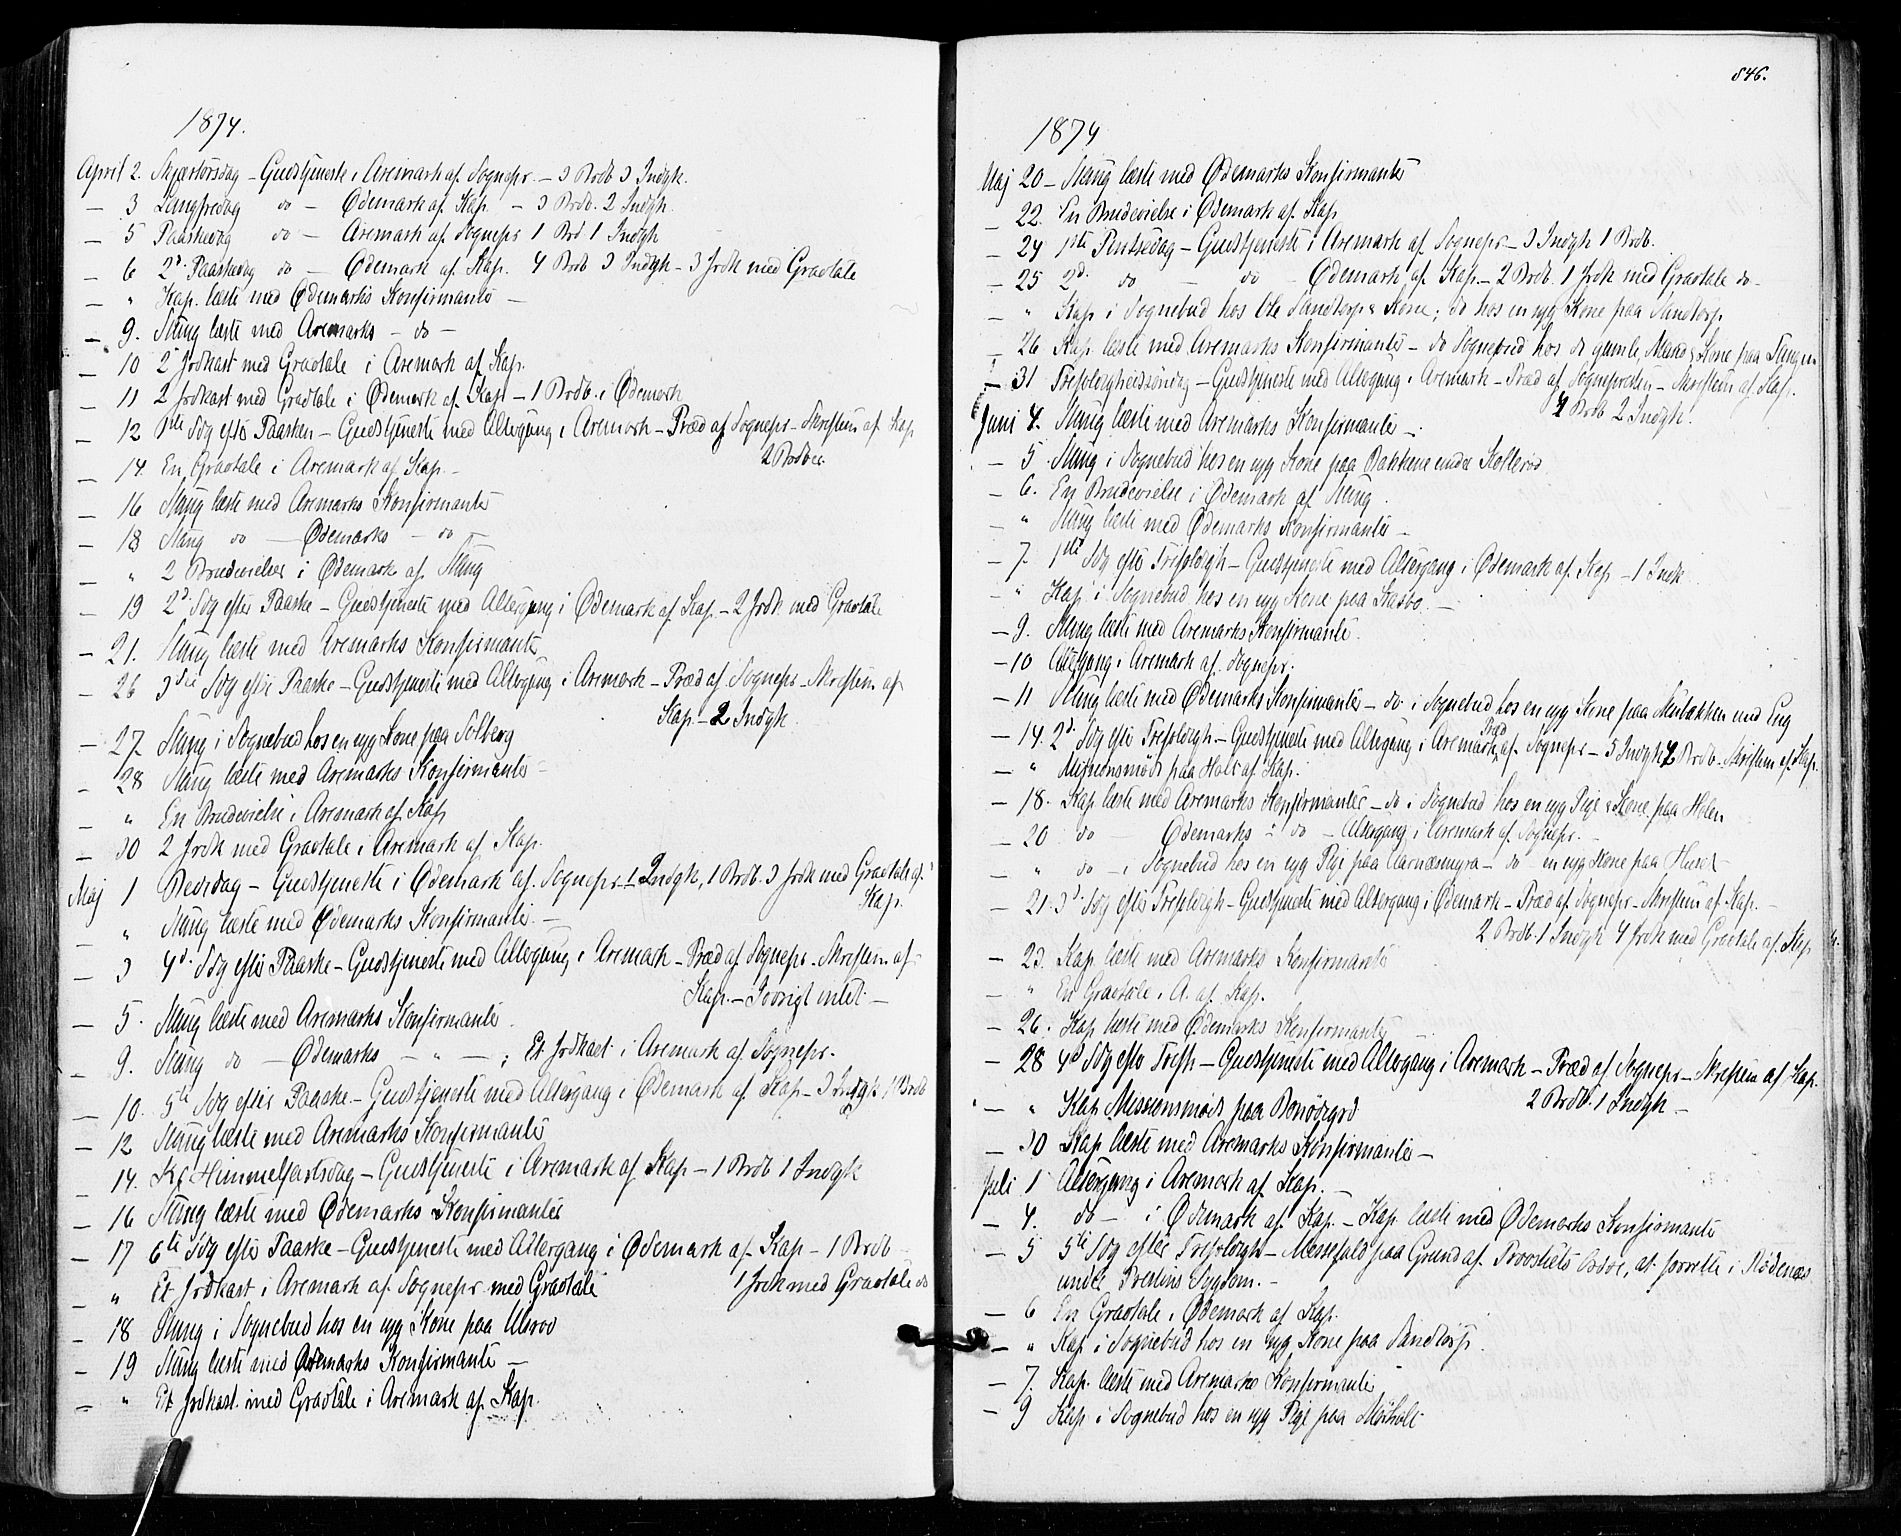 1874.
April 2. Skjærtorsdag – Gudstjeneste i Aremark af Sognepr. – 3 Brdb 3 Indgk.
– 3 Langfredag do – Ødemark af Kap. – 3 Brdb. 2 Indgk.
– 5 Paaskedag do – Aremark af Sognepr 1 Brd 1 Indgk
– 6 2d. Paaskedag do – Ødemark af Kap. 4 Brdb 3 Indgk – 3 Jrdk med Gravtale
– " Kap. læste med Ødemarks Konfirmanter –
– 9. Stang læste med Aremarks – do –
– 10 2 Jrdkast med Gravtale i Aremark af Kap.
– 11 2 Jrdkast med Gravtale i Ødemark af Kap – 1 Brdb. i Ødemark
– 12 1ste Sdg efter Paasken – Gudstjeneste med Altergang i Aremark – Præd af Sognepr – Skriftem af Kap
2 Brdvie.
– 14. En Gravtale i Aremark af Kap. –
– 16 Stang læste med Aremarks Konfirmanter
– 18 Stang do – Ødemarks – do –
– " 2 Brudevielser i Ødemark af Stang
– 19 2d Sdg efter Paaske – Gudstjeneste med Altergang i Ødemark af Kap. – 2 Jrdk. med Gravtale
– 21. Stang læste med Aremarks Konfirmanter
– 26 3die Sdg efter Paaske – Gudstjeneste med Altergang i Aremark – Præd af Sognepr – Skriftem af
Kap. – 2 Indgk.
– 27 Stang i Sognebud hos en syg Kone paa Solberg
– 28 Stang læste med Aremarks Konfirmanter –
– " En Brudevielse i Aremark af Kap
– 30 2 Jrdk med Gravtale i Aremark af Kap.
Maj 1 Bededag – Gudstjeneste i Ødemark af Sognepr – 1 Indgk, 1 Brdb. 3 Jrdk med Gravtale af
Kap.
– " Stang læste med Ødemarks Konfirmanter. –
– 3 4d. Sdg efter Paaske – Gudstjeneste med Altergang i Aremark – Præd af Sognepr – Skriftem af
Kap. – Jøvrigt intet –
– 5. Stang læste med Aremarks Konfirmanter.
– 9. Stang do – Ødemarks – " – ; Et Jrdkast i Aremark af Sognepr.
– 10. 5te Sdg efter Paaske – Gudstjeneste med Altergang i Ødemark af Kap – 3 Indgk, 1 Brdb
– 12 Stang læste med Aremarks Konfirmanter
– 14. Kr Himmelfartsdag – Gudstjeneste i Aremark af Kap – 1 Brdb 1 Indgk
– 16 Stang læste med Ødemarks Konfirmanter
– 17 6te Sdg efter Paaske – Gudstjeneste med Altergang i Ødemark af Kap – 1 Brdb
1 Jrdk med Gravtale do
– " Et Jrdkast i Aremark af Sognepr med Gravtale
– 18 Stang i Sognebud hos en syg Kone paa
– 19 Stang læste med Ødemarks Konfirmanter –
– " Et Jrdkast. med Gravtale i Aremark af Kap.
846.
1874
Maj 20 – Stang læste med Ødemarks Konfirmanter
– 22. En Brudevielse i Ødemark af Kap
– 24 1ste Pintsedag – Gudstjeneste i Aremark af Sognepr – 3 Indgk 1 Brdb.
– 25 2d. do – do – Ødemark af Kap. – 2 Brdb. 1 Jrdk med Gravtale do –
– " Kap i Sognebud hos Ole Sandtorps Kone; do hos en syg Kone paa Sandtorp
– 26 Kap. læste med Aremarks Konfirmanter – do Sognebud hos de gamle Mand & Kone paa Tangen
– 31 Trefoldighedssøndag – Gudstjeneste med Altergang i Aremark – Præd af Sognepresten – Skriftem af Kap.
4 Brdb 2 Indgk.
Juni 4. Stang læste med Aremarks Konfirmanter –
– 5 Stang i Sognebud hos en syg Kone paa Bakkene under Kollerød
– 6. En Brudevielse i Ødemark af Stang.
– " Stang læste med Ødemarks Konfirmanter –
– 7. 1ste Sdg efter Trefoldgh – Gudstjeneste med Altergang i Ødemark af Kap – 1 Indk
– " Kap i Sognebud hos en syg Kone paa Skasbo. –
– 9. Stang læste med Aremarks Konfirmanter.
– 10 Altergang i Aremark af Sognepr.
– 11 Stang læste med Ødemarks Konfirmanter – do i Sognebud hos en syg Kone paa Skubækken und Eng
– 14. 2d. Sdg efter Trefoldgh – Gudstjeneste med Altergang i Aremark Præd af Sognepr – 5 Indgk 2 Brdb. Skriftem af Kap.
– " Missionsmøde paa Holt af Kap.
– 18. Kap læste med Aremarks Konfirmanter – do i Sognebud hos en syg Pige & Kone paa Holen
– 20 do – Ødemarks – do – Altergang i Aremark af Sognepr. –
– " do – i Sognebud hos en syg Pige paa Aarnæsmyra – do en syg Kone paa Huset
– 21. 3d. Sdg efter Trefoldgh – Gudstjeneste med Altergang i Ødemark – Præd af Sognepr – Skriftem af Kap. –
2 Brdb. 1 Indgk 4 Jrdk med Gravtale af Kap
– 23. Kap læste med Aremarks Konfirmanter
– " En Gravtale i A. af Kap.
– 26. Kap læste med Ødemarks Konfirmanter
– 28 4d Sdg efter Trefh – Gudstjeneste med Altergang i Aremark – Præd af Sognepr – Skriftem af Kap.
2 Brdb. 1 Indgk –
– " Kap Missionsmøde paa Bøndrgrd
– 30 Kap læste med Aremarks Konfirmanter –
Juli 1 Altergang i Aremark af Kap. –
– 4. do – i Ødemark af Kap. – Kap. læste med Ødemarks Konfirmanter
– 5 5te Sdg efter Trefoldgh – Messefald paa Grund af Provstiets Ordre, at forrette i Rødenæs
under Prestens Sygdom. –
– 6 En Gravtale i Ødemark af Kap.
– " Kap i Sognebud hos en syg Kone paa Sandtorp.
– 7. Kap. læste med Aremarks Konfirmanter
– 9 Kap i Sognebud hos en syg Pige paa